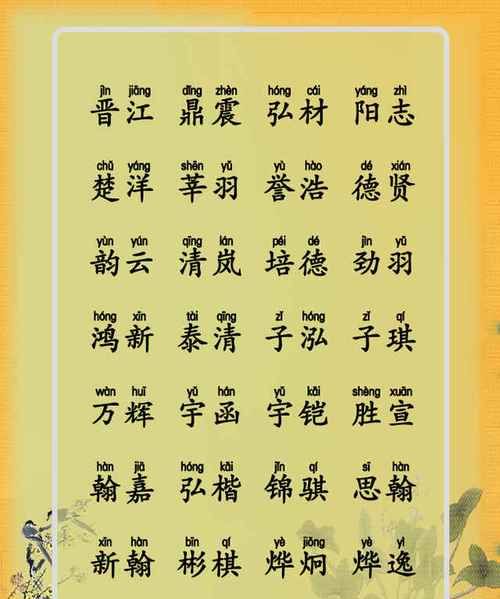 jìn jiāng dǐng zhèn hóng cái yáng zhì
晋江 鼎震 弘材 阳志
chǔ yáng shēn yǔ yù hào dé xián
楚洋 莘羽 誉浩 德贤
yùn yún qīng lán péi dé jìn yǔ
韵云 清岚 培德 劲羽
hóng xīn tài qīng zǐ hóng zǐ qí
鸿新 泰清 子泓 子琪
wàn huī yǔ hán yǔ kǎi shèng xuān
万辉 宇函 宇铠 胜宣
hàn jiā hóng kǎi jǐn qí sī hàn
翰嘉 弘楷 锦骐 思翰
xīn hàn bīn qí yè jiǒng yè yì
新翰 彬棋 烨炯 烨逸